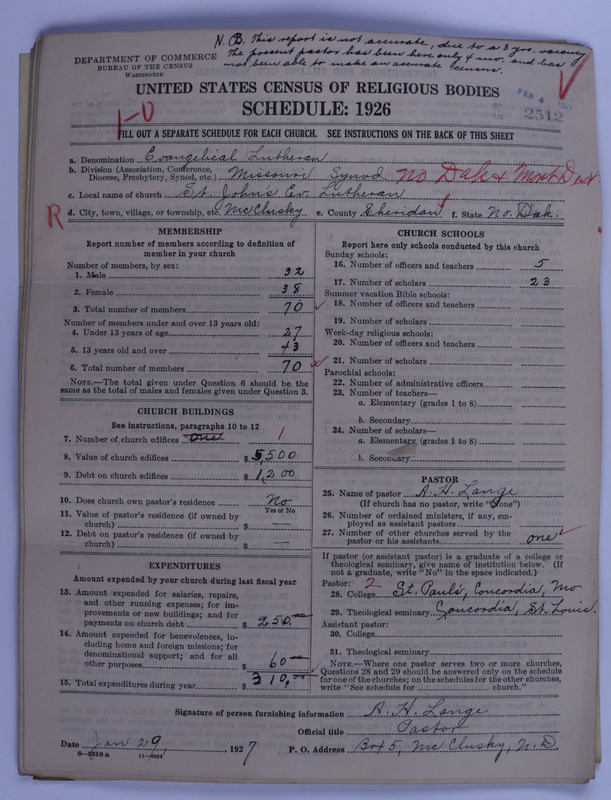 N.B. This report is not accurate, due to a 3 yrs. vacancy.
The present pastor has been here only 4 mo. and has
not been able to make an accurate census.
DEPARTMENT OF COMMERCE
BUREAU OF THE CENSUS
WASHINGTON
UNITED STATES CENSUS OF RELIGIOUS BODIES
SCHEDULE: 1926
FEB 4 1927
2512
1-0
FILL OUT A SEPARATE SCHEDULE FOR EACH CHURCH. SEE INSTRUCTIONS ON THE BACK OF THIS SHEET
a. Denomination Evangelical Lutheran
b. Division (Association, Conference, Diocese, Presbytery, Synod, etc.) Missouri Synod No Dak & Mont Dist
c. Local name of church St. John's Ev. Lutheran
R d. City, town, village, or township, etc. McClusky e. County Sheridan f. State No. Dak.
MEMBERSHIP
Report number of members according to definition of
member in your church
Number of members, by sex:
1. Male 32
2. Female 38
3. Total number of members 70
Number of members under and over 13 years old:
4. Under 13 years of age 27
5. 13 years old and over 43
6. Total number of members 70
NOTE.—The total given under Question 6 should be the
same as the total of males and females given under Question 3.
CHURCH BUILDINGS
See instructions, paragraphs 10 to 12
7. Number of church edifices One 1
8. Value of church edifices $ 5,500
9. Debt on church edifices $ 1,200
10. Does church own pastor's residence No
Yes or No
11. Value of pastor's residence (if owned by
church) $ —
12. Debt on pastor's residence (if owned by
church) $ —
EXPENDITURES
Amount expended by your church during last fiscal year
13. Amount expended for salaries, repairs,
and other running expenses; for im-
provements or new buildings; and for
payments on church debt $ 250.—
14. Amount expended for benevolences, in-
cluding home and foreign missions; for
denominational support; and for all
other purposes $ 60—
15. Total expenditures during year $ 310,00
CHURCH SCHOOLS
Report here only schools conducted by this church
Sunday schools:
16. Number of officers and teachers 5
17. Number of scholars 23
Summer vacation Bible schools:
18. Number of officers and teachers
19. Number of scholars
Week-day religious schools:
20. Number of officers and teachers
21. Number of scholars
Parochial schools:
22. Number of administrative officers
23. Number of teachers—
a. Elementary (grades 1 to 8)
b. Secondary
24. Number of scholars—
a. Elementary (grades 1 to 8)
b. Secondary
PASTOR
25. Name of pastor A. H. Lange
(If church has no pastor, write "None")
26. Number of ordained ministers, if any, em-
ployed as assistant pastors
27. Number of other churches served by the
pastor or his assistants one
If pastor (or assistant pastor) is a graduate of a college or
theological seminary, give name of institution below. (If
not a graduate, write "No" in the space indicated.)
Pastor: 2
28. College St. Paul's, Concordia, Mo
29. Theological seminary Concordia, St. Louis.
Assistant pastor:
30. College
31. Theological seminary
NOTE.—Where one pastor serves two or more churches,
Questions 28 and 29 should be answered only on the schedule
for one of the churches; on the schedules for the other churches,
write "See schedule for church."
Signature of person furnishing information A. H. Lange
Official title Pastor
Date Jan 29, 1927 P. O. Address Box 5, McClusky, N. D.
8—5518 a